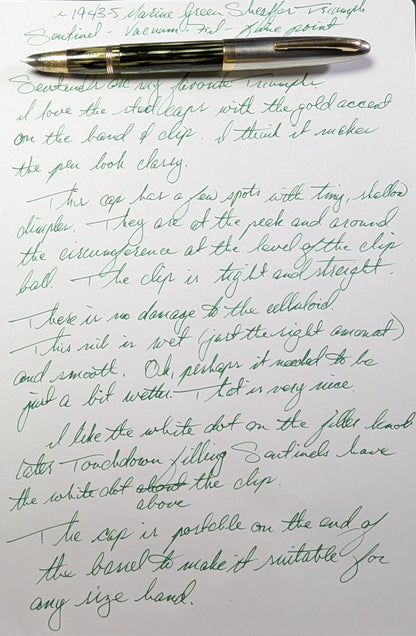 ~ 1943-5 Marine Green Sheaffer Triumph
Sentinel - Vacuum-Fil - Fine point
Sentinels are my favorite Triumph.
I love the steel caps with the gold accent
on the band & clip. I think it makes
the pen look classy.
This cap has a few spots with tiny, shallow
dimples. They are at the peak and around
the circumference at the level of the clip
ball. The clip is tight and straight.
There is no damage to the celluloid.
This nib is wet (just the right amount)
and smooth. Ok, perhaps it needed to be
just a bit wetter. That is very nice.
I like the white dot on the filler knob
Later Touchdown filling Sentinels have
the white dot about the clip.
above
The cap is postable on the end of
the barrel to make it suitable for
any size hand.